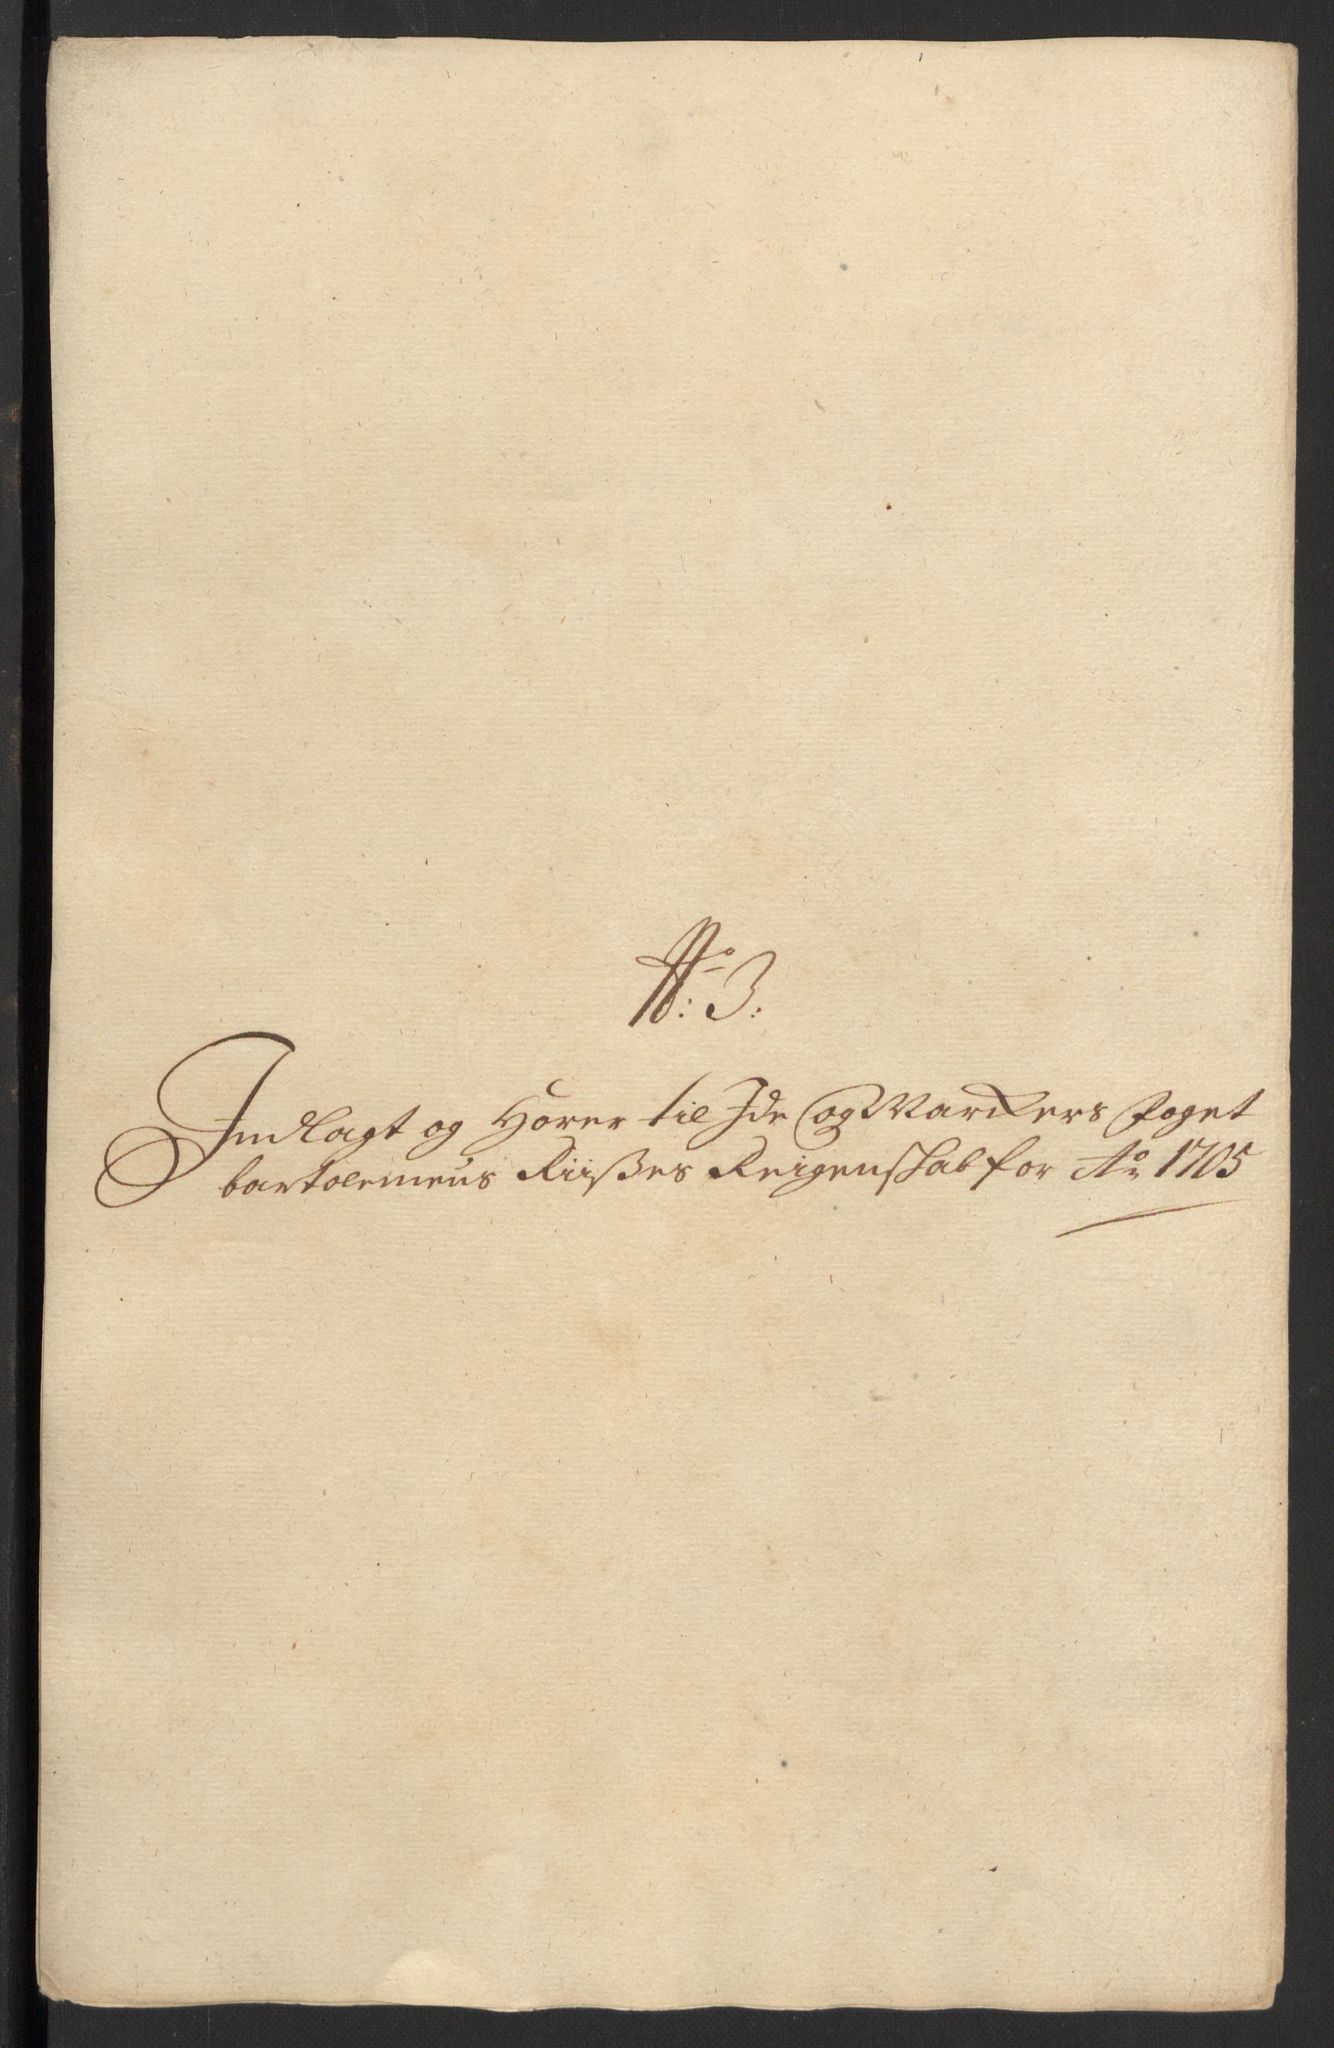 No: 3:
Indlagt og Hörer til Ide og Marckers foget
bartolemeus Riißes Reigenskab for Ao 1705